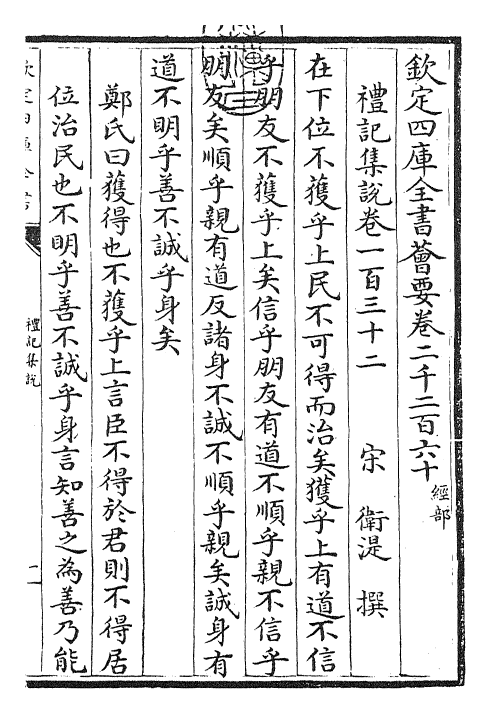 欽定四庫全書薈要卷二千二百六十 經部
禮記集說卷一百三十二 宋 衛湜 撰
在下位不獲乎上民不可得而治矣獲乎上有道不信
乎朋友不獲乎上矣信乎朋友有道不順乎親不信乎
朋友矣順乎親有道反諸身不誠不順乎親矣誠身有
道不明乎善不誠乎身矣
鄭氏曰獲得也不獲乎上言臣不得於君則不得居
位治民也不明乎善不誠乎身言知善之為善乃能
禮記集說